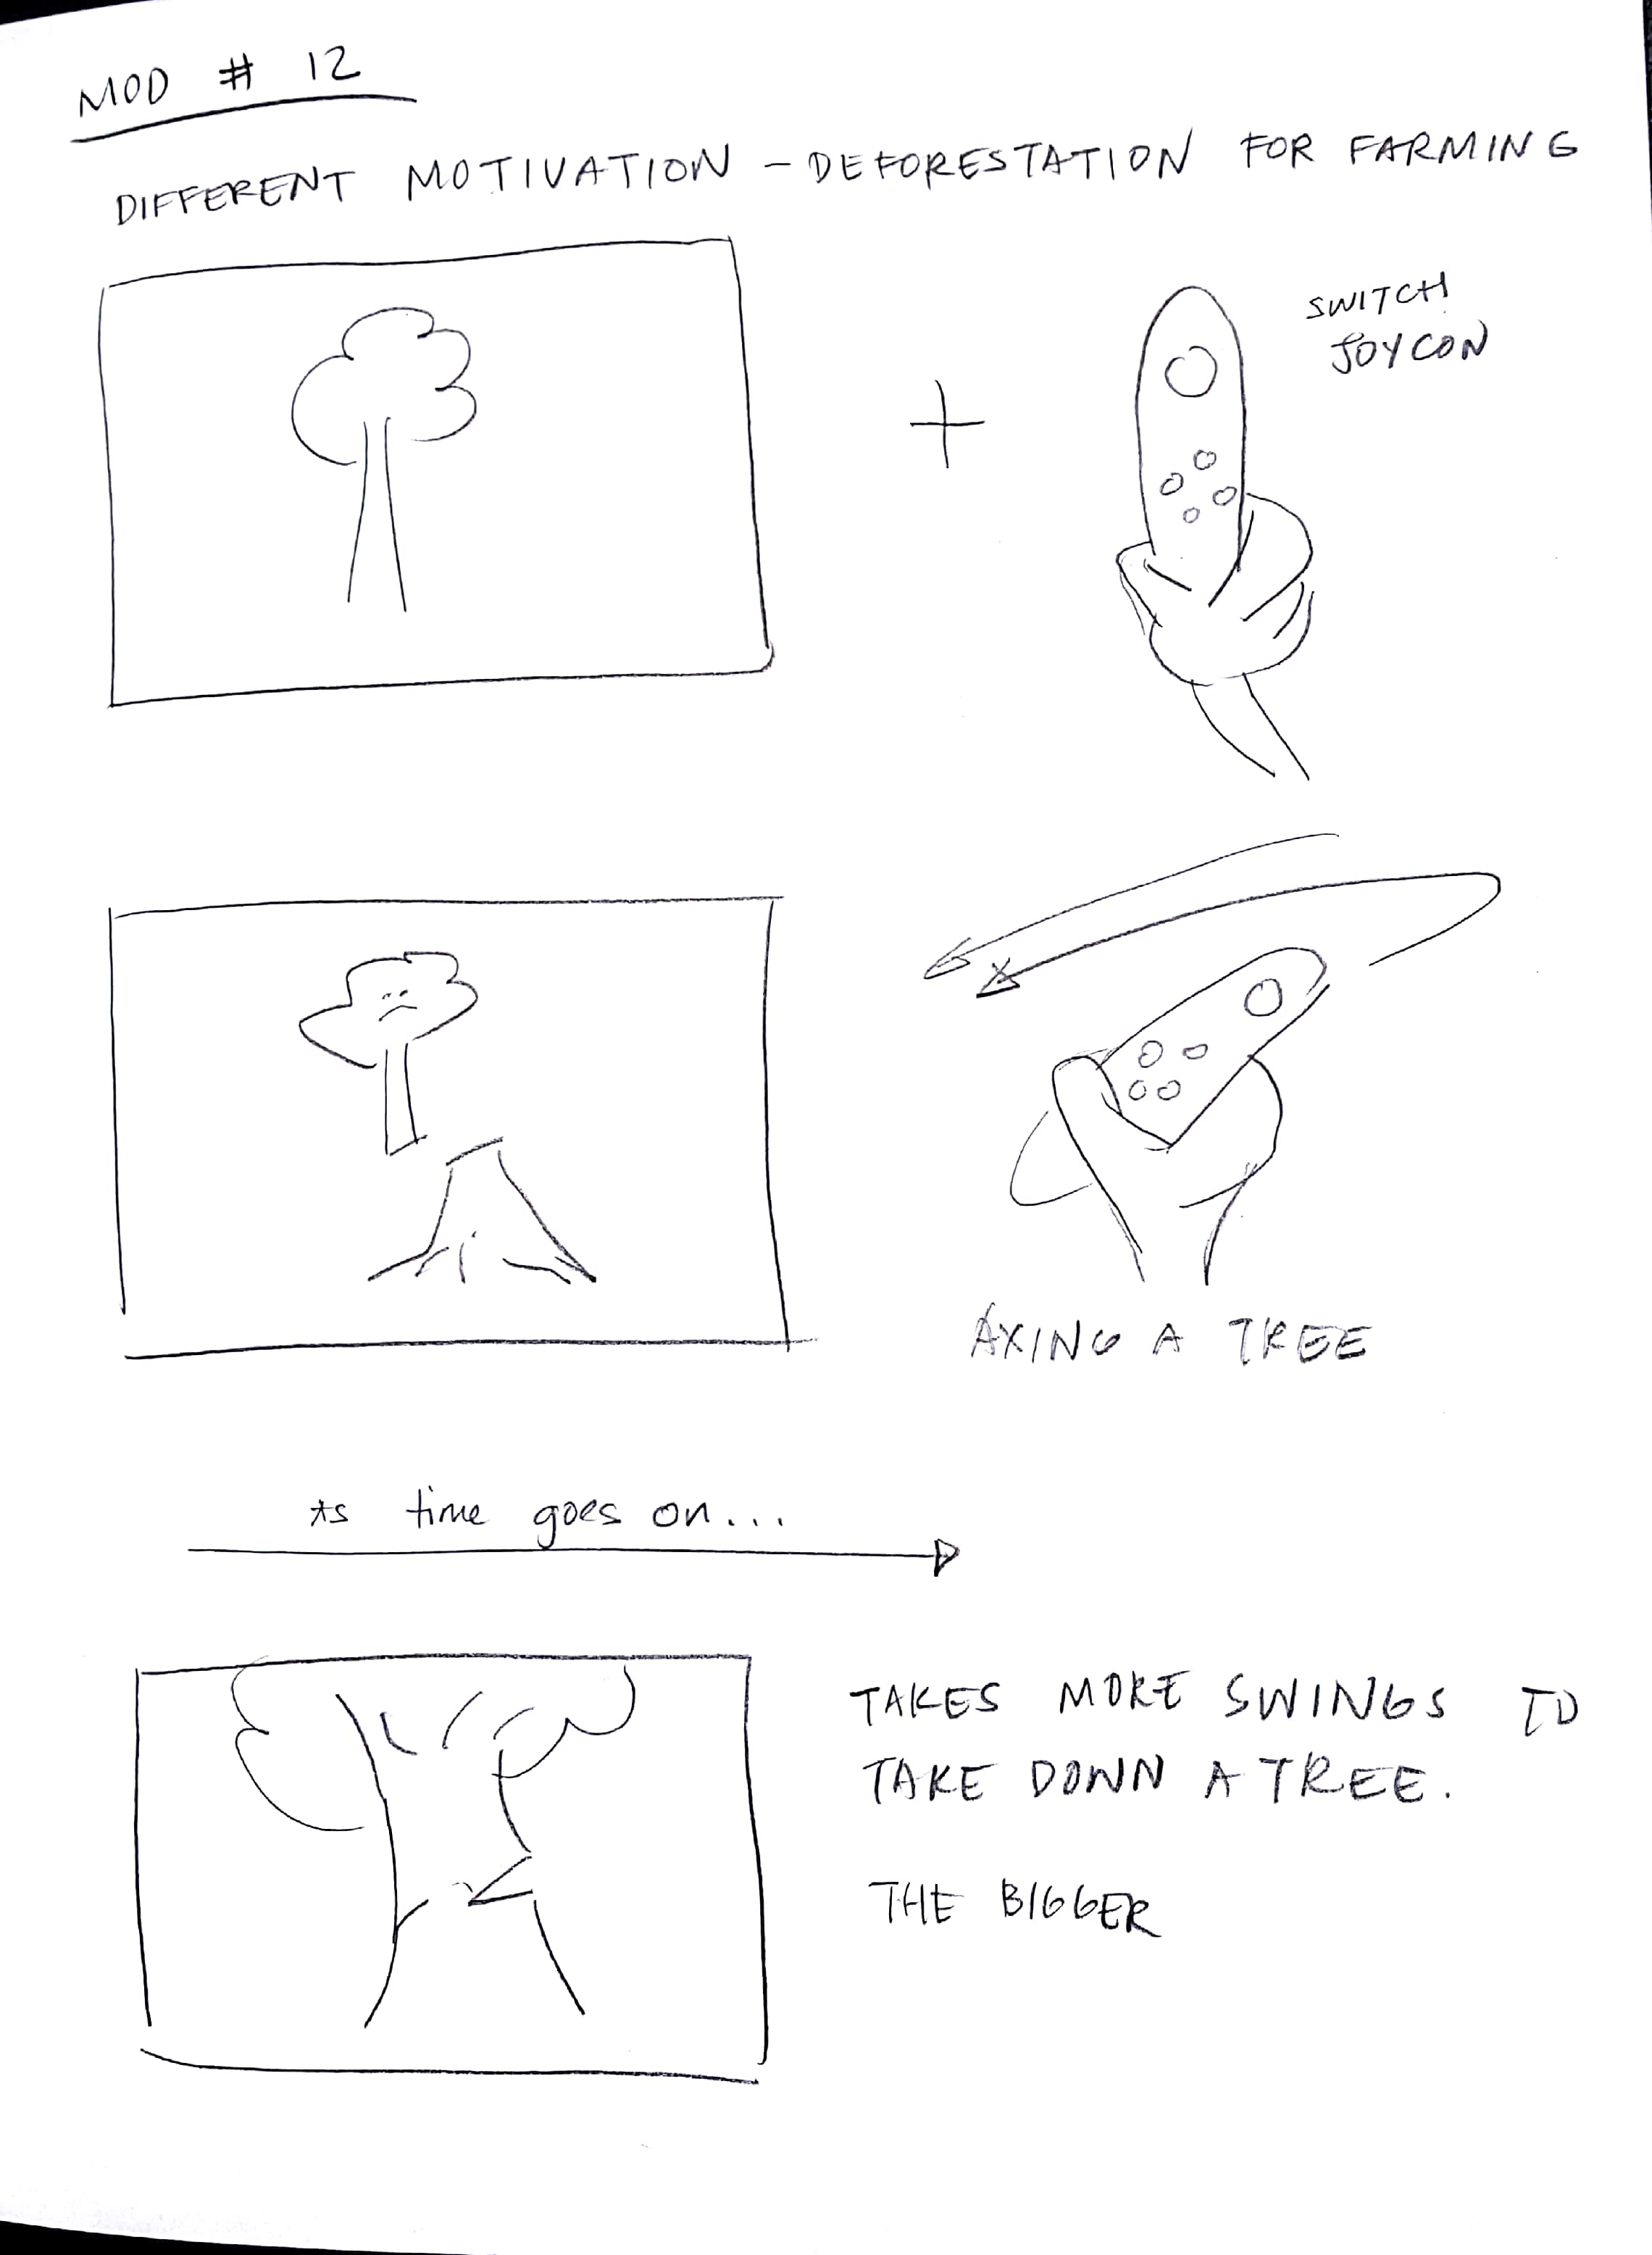 MOD # 12
DIFFERENT MOTIVATION - DEFORESTATION FOR FARMING
SWITCH
JOYCON
AXING A TREE
As time goes on...
TAKES MORE SWINGS TO
TAKE DOWN A TREE.
THE BIGGER